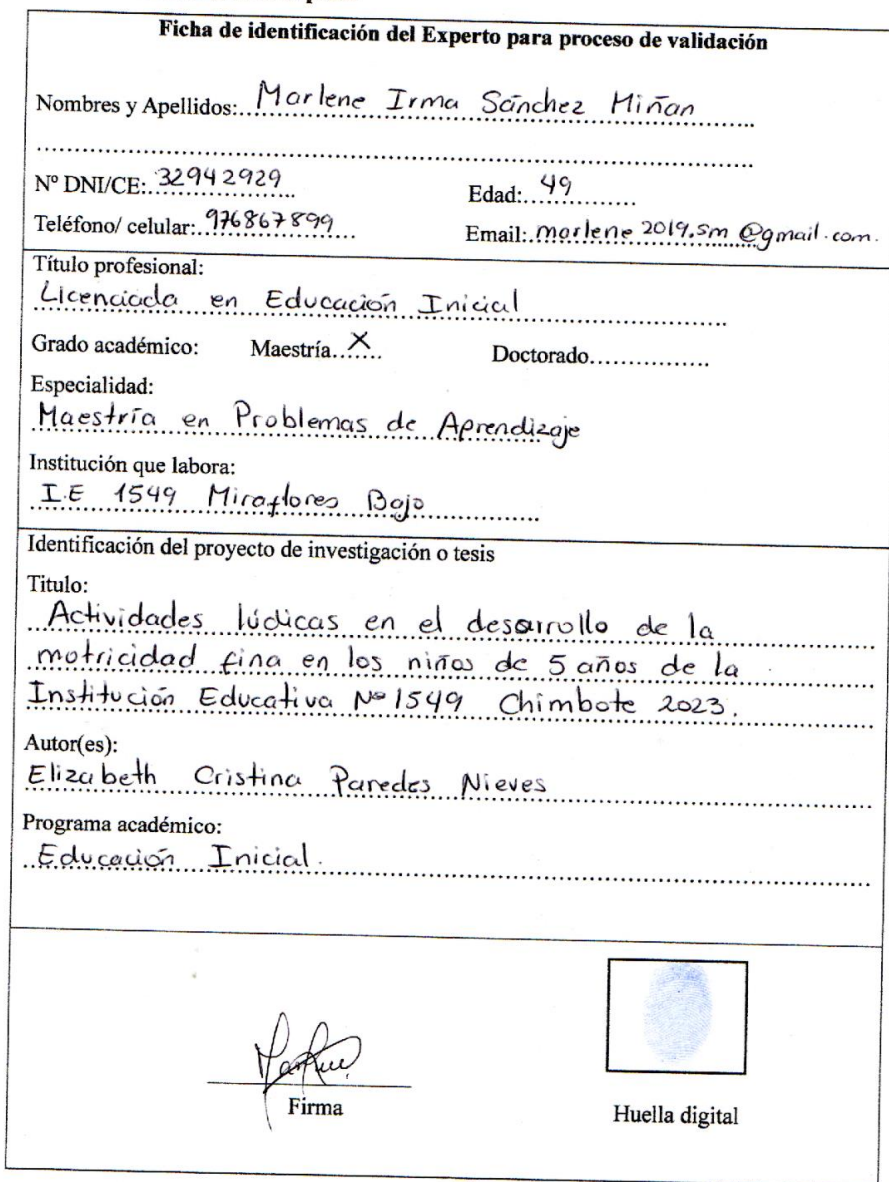 Ficha de identificación del Experto para proceso de validación
Nombres y Apellidos: Marlene Irma Sánchez Miñan
Nº DNI/CE: 32942929 Edad: 49
Teléfono/ celular: 976867899 Email: marlene2019.sm@gmail.com.
Título profesional:
Licenciada en Educación Inicial
Grado académico: Maestría X Doctorado
Especialidad:
Maestría en Problemas de Aprendizaje
Institución que labora:
I.E 1549 Miraflores Bajo
Identificación del proyecto de investigación o tesis
Titulo:
Actividades lúdicas en el desarrollo de la
motricidad fina en los niños de 5 años de la
Institución Educativa Nº 1549 Chimbote 2023.
Autor(es):
Elizabeth Cristina Paredes Nieves
Programa académico:
Educación Inicial.
Firma
Huella digital